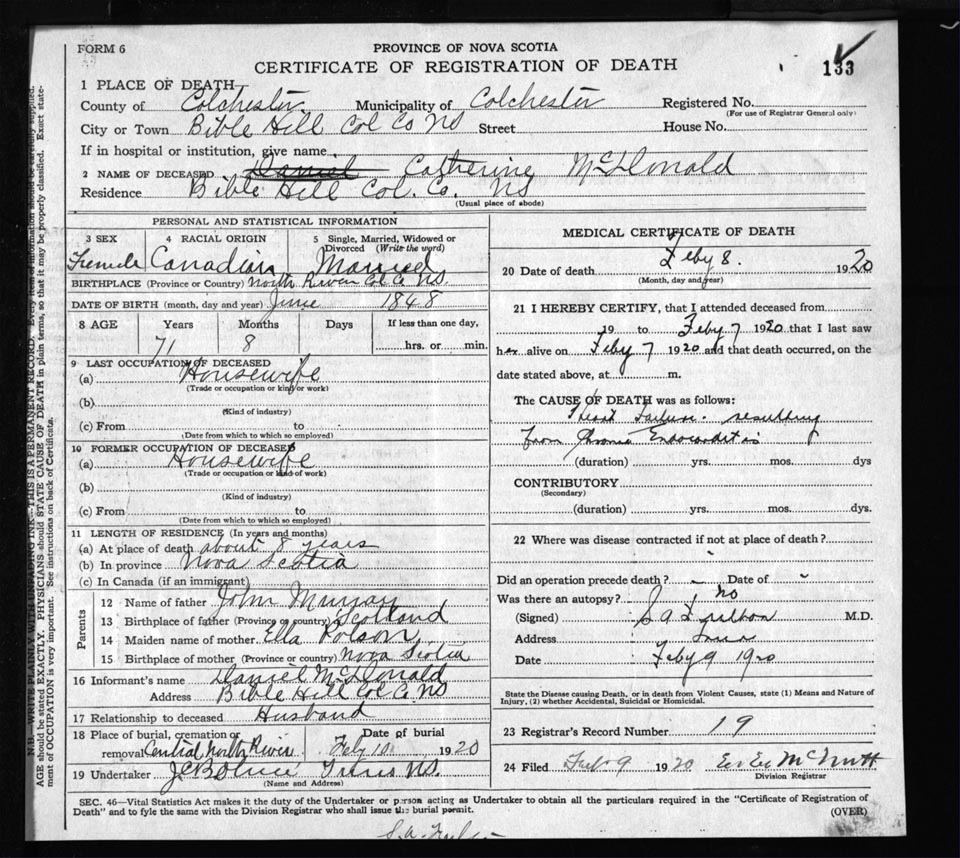 FORM 6
PROVINCE OF NOVA SCOTIA
CERTIFICATE OF REGISTRATION OF DEATH
133
1 PLACE OF DEATH
County of Colchester Municipality of Colchester Registered No.
(For use of Registrar General only)
City or Town Bible Hill Col Co NS Street House No.
If in hospital or institution, give name
2 NAME OF DECEASED Daniel Catherine McDonald
Residence Bible Hill Col. Co. NS
(Usual place of abode)
PERSONAL AND STATISTICAL INFORMATION
3 SEX 4 RACIAL ORIGIN 5 Single, Married, Widowed or Divorced (Write the word)
Female Canadian Married
BIRTHPLACE (Province or Country) North River Col Co NS.
DATE OF BIRTH (month, day and year) June 1848
8 AGE Years Months Days If less than one day,
71 8 hrs. or min.
9 LAST OCCUPATION OF DECEASED
(a) Housewife
(Trade or occupation or kind of work)
(b)
(Kind of industry)
(c) From to
(Date from which to which so employed)
10 FORMER OCCUPATION OF DECEASED
(a) Housewife
(Trade or occupation or kind of work)
(b)
(Kind of industry)
(c) From to
(Date from which to which so employed)
11 LENGTH OF RESIDENCE (In years and months)
(a) At place of death about 8 years
(b) In province Nova Scotia
(c) In Canada (if an immigrant)
Parents
12 Name of father John Murray
13 Birthplace of father (Province or country) Scotland
14 Maiden name of mother Ella Polson
15 Birthplace of mother (Province or country) Nova Scotia
16 Informant's name Daniel McDonald
Address Bible Hill Col Co NS
17 Relationship to deceased Husband
18 Place of burial, cremation or removal Central North River Date of burial Feby 10 1920
19 Undertaker Truro NS.
(Name and Address)
MEDICAL CERTIFICATE OF DEATH
20 Date of death Feby 8. 1920
(Month, day and year)
21 I HEREBY CERTIFY, that I attended deceased from
19 to Feby 7 1920 that I last saw
her alive on Feby 7 1920 and that death occurred, on the
date stated above, at m.
The CAUSE OF DEATH was as follows:
Heart Failure. resulting
from Chronic Endocarditis
(duration) yrs. mos. dys
CONTRIBUTORY
(Secondary)
(duration) yrs. mos. dys.
22 Where was disease contracted if not at place of death?
Did an operation precede death? Date of
Was there an autopsy? no
(Signed) S A M.D.
Address Truro
Date Feby 9 1920
State the Disease causing Death, or in death from Violent Causes, state (1) Means and Nature of
Injury, (2) whether Accidental, Suicidal or Homicidal.
23 Registrar's Record Number 19
24 Filed Feb 9 1920 McNutt
Division Registrar
SEC. 46—Vital Statistics Act makes it the duty of the Undertaker or person acting as Undertaker to obtain all the particulars required in the "Certificate of Registration of
Death" and to fyle the same with the Division Registrar who shall issue the burial permit. (OVER)
N.B.—WRITE PLAINLY WITH UNFADING INK—THIS IS A PERMANENT RECORD. Every item of information should be carefully supplied.
AGE should be stated EXACTLY. PHYSICIANS should STATE CAUSE OF DEATH in plain terms, so that it may be properly classified. Exact state-
ment of OCCUPATION is very important. See instructions on back of Certificate.